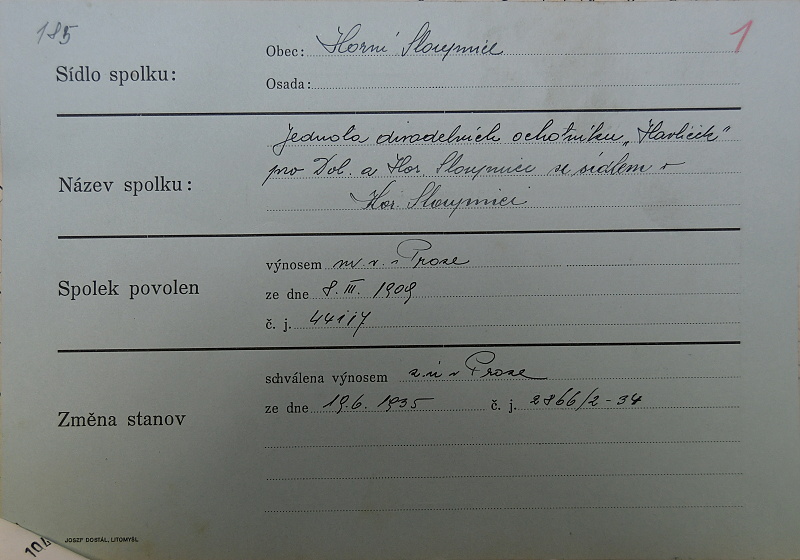 185
1
Sídlo spolku:
Obec: Horní Sloupnice
Osada:
Název spolku:
Jednota divadelních ochotníku „Havlíček"
pro Dol. a Hor. Sloupnici se sídlem v
Hor. Sloupnici
Spolek povolen
výnosem m. v. v Praze
ze dne 8. III. 1909
č. j. 44117
Změna stanov
schválena výnosem z. ú v Praze
ze dne 19.6. 1935 č. j. 2866/2-34
JOSEF DOSTÁL, LITOMYŠL
104